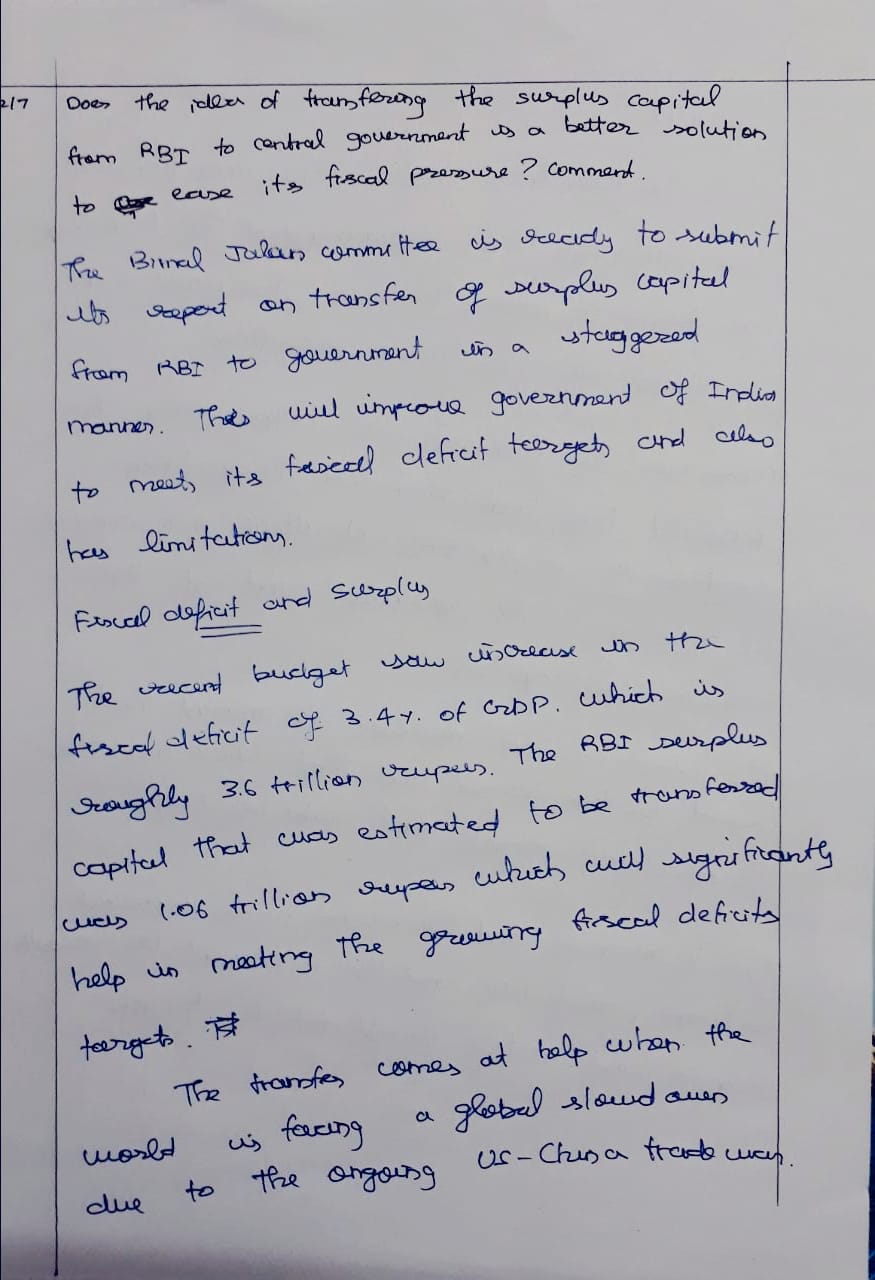 2/7
Does the idea of transfering the surplus capital
from RBI to central government is a better solution
to ease its fiscal pressure? Comment.
The Bimal Jalan committee is ready to submit
its report on transfer of surplus capital
from RBI to government in a staggered
manner. This will improve government of India
to meet its fiscal deficit targets and also
has limitations.
Fiscal deficit and surplus
The recent budget saw increase in the
fiscal deficit of 3.4%. of GDP. which is
roughly 3.6 trillion rupees. The RBI surplus
capital that was estimated to be transferred
was 1.06 trillion rupees which will significantly
help in meeting the growing fiscal deficits
targets.
The transfer comes at help when the
world is facing a global slowdown
due to the ongoing US-China trade war.